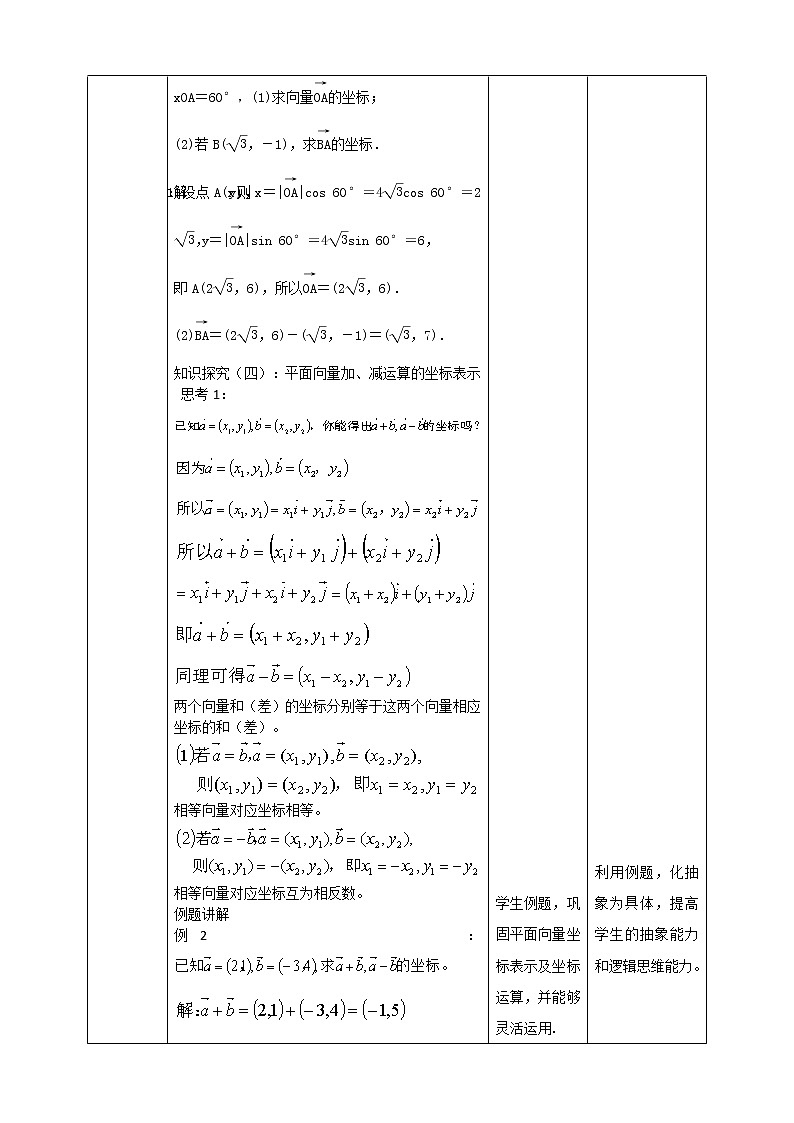 xOA=60°,(1)求向量OA→的坐标;
(2)若 B(√3,-1),求BA→的坐标.
设点 A(x,则 x=|OA→|cos 60°=4√3cos 60°=2
√3,y=|OA→|sin 60°=4√3sin 60°=6,
即 A(2√3,6),所以OA→=(2√3,6).
(2)BA→=(2√3,6)-(√3,-1)=(√3,7).
知识探究(四):平面向量加、减运算的坐标表示
思考 1:
已知a→=(x₁,y₁),b→=(x₂,y₂),你能得出a→+b→,a→-b→的坐标吗?
因为a→=(x₁,y₁),b→=(x₂,y₂)
所以a→=(x₁,y₁)=x₁i→+y₁j→,b→=(x₂,y₂)=x₂i→+y₂j→
所以a→+b→=(x₁i→+y₁j→)+(x₂i→+y₂j→)
=x₁i→+y₁j→+x₂i→+y₂j→=(x₁+x₂)i→+(y₁+y₂)j→
即a→+b→=(x₁+x₂,y₁+y₂)
同理可得a→-b→=(x₁-x₂,y₁-y₂)
两个向量和(差)的坐标分别等于这两个向量相应
坐标的和(差)。
(1)若a→=b→,a→=(x₁,y₁),b→=(x₂,y₂),
则(x₁,y₁)=(x₂,y₂),即x₁=x₂,y₁=y₂
相等向量对应坐标相等。
(2)若a→=-b→,a→=(x₁,y₁),b→=(x₂,y₂),
则(x₁,y₁)=-(x₂,y₂),即x₁=-x₂,y₁=-y₂
相等向量对应坐标互为相反数。
例题讲解
例 2 :
已知a→=(2,1),b→=(-3,4),求a→+b→,a→-b→的坐标。
解:a→+b→=(2,1)+(-3,4)=(-1,5)
学生例题,巩
固平面向量坐
标表示及坐标
运算,并能够
灵活运用.
利用例题,化抽
象为具体,提高
学生的抽象能力
和逻辑思维能力。